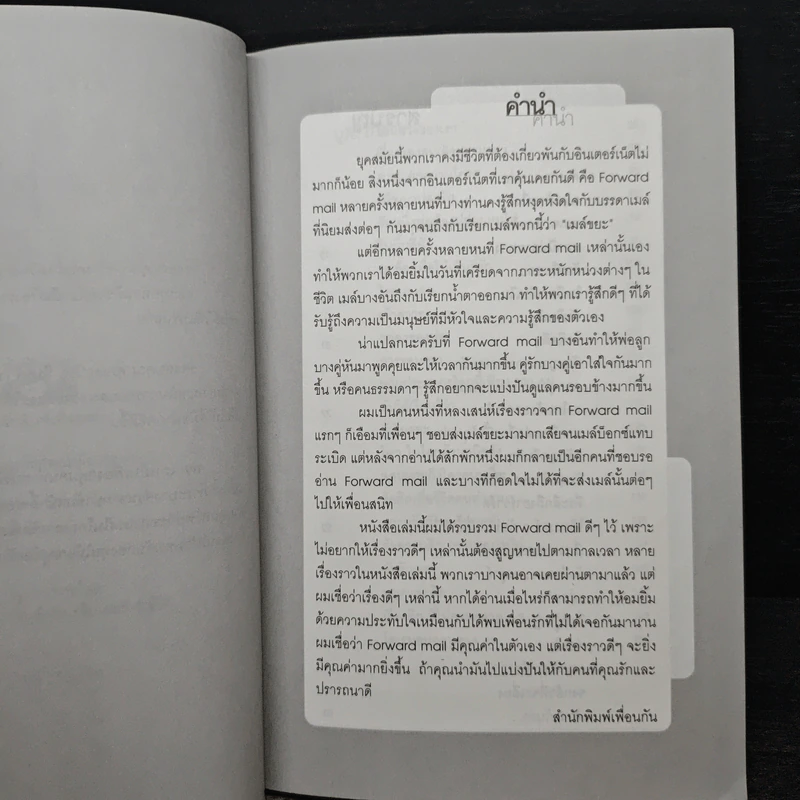 คำนำ
ยุคสมัยนี้พวกเราคงมีชีวิตที่ต้องเกี่ยวพันกับอินเตอร์เน็ตไม่
มากก็น้อย สิ่งหนึ่งจากอินเตอร์เน็ตที่เราคุ้นเคยกันดี คือ Forward
mail หลายครั้งหลายหนที่บางท่านคงรู้สึกหงุดหงิดใจกับบรรดาเมล์
ที่นิยมส่งต่อๆ กันมาจนถึงกับเรียกเมล์พวกนี้ว่า "เมล์ขยะ"
แต่อีกหลายครั้งหลายหนที่ Forward mail เหล่านั้นเอง
ทำให้พวกเราได้อมยิ้มในวันที่เครียดจากภาระหนักหน่วงต่างๆ ใน
ชีวิต เมล์บางอันถึงกับเรียกน้ำตาออกมา ทำให้พวกเรารู้สึกดีๆ ที่ได้
รับรู้ถึงความเป็นมนุษย์ที่มีหัวใจและความรู้สึกของตัวเอง
น่าแปลกนะครับที่ Forward mail บางอันทำให้พ่อลูก
บางคู่หันมาพูดคุยและให้เวลากันมากขึ้น คู่รักบางคู่เอาใส่ใจกันมาก
ขึ้น หรือคนธรรมดาๆ รู้สึกอยากจะแบ่งปันดูแลคนรอบข้างมากขึ้น
ผมเป็นคนหนึ่งที่หลงเสน่ห์เรื่องราวจาก Forward mail
แรกๆ ก็เอือมที่เพื่อนๆ ชอบส่งเมล์ขยะมามากเสียจนเมล์บ็อกซ์แทบ
ระเบิด แต่หลังจากอ่านได้สักพักหนึ่งผมก็กลายเป็นอีกคนที่ชอบรอ
อ่าน Forward mail และบางทีก็อดใจไม่ได้ที่จะส่งเมล์นั้นต่อๆ
ไปให้เพื่อนสนิท
หนังสือเล่มนี้ผมได้รวบรวม Forward mail ดีๆ ไว้ เพราะ
ไม่อยากให้เรื่องราวดีๆ เหล่านั้นต้องสูญหายไปตามกาลเวลา หลาย
เรื่องราวในหนังสือเล่มนี้ พวกเราบางคนอาจเคยผ่านตามาแล้ว แต่
ผมเชื่อว่าเรื่องดีๆ เหล่านี้ หากได้อ่านเมื่อไหร่ก็สามารถทำให้อมยิ้ม
ด้วยความประทับใจเหมือนกับได้พบเพื่อนรักที่ไม่ได้เจอกันมานาน
ผมเชื่อว่า Forward mail มีคุณค่าในตัวเอง แต่เรื่องราวดีๆ จะยิ่ง
มีคุณค่ามากยิ่งขึ้น ถ้าคุณนำมันไปแบ่งปันให้กับคนที่คุณรักและ
ปรารถนาดี
สำนักพิมพ์เพื่อนกัน